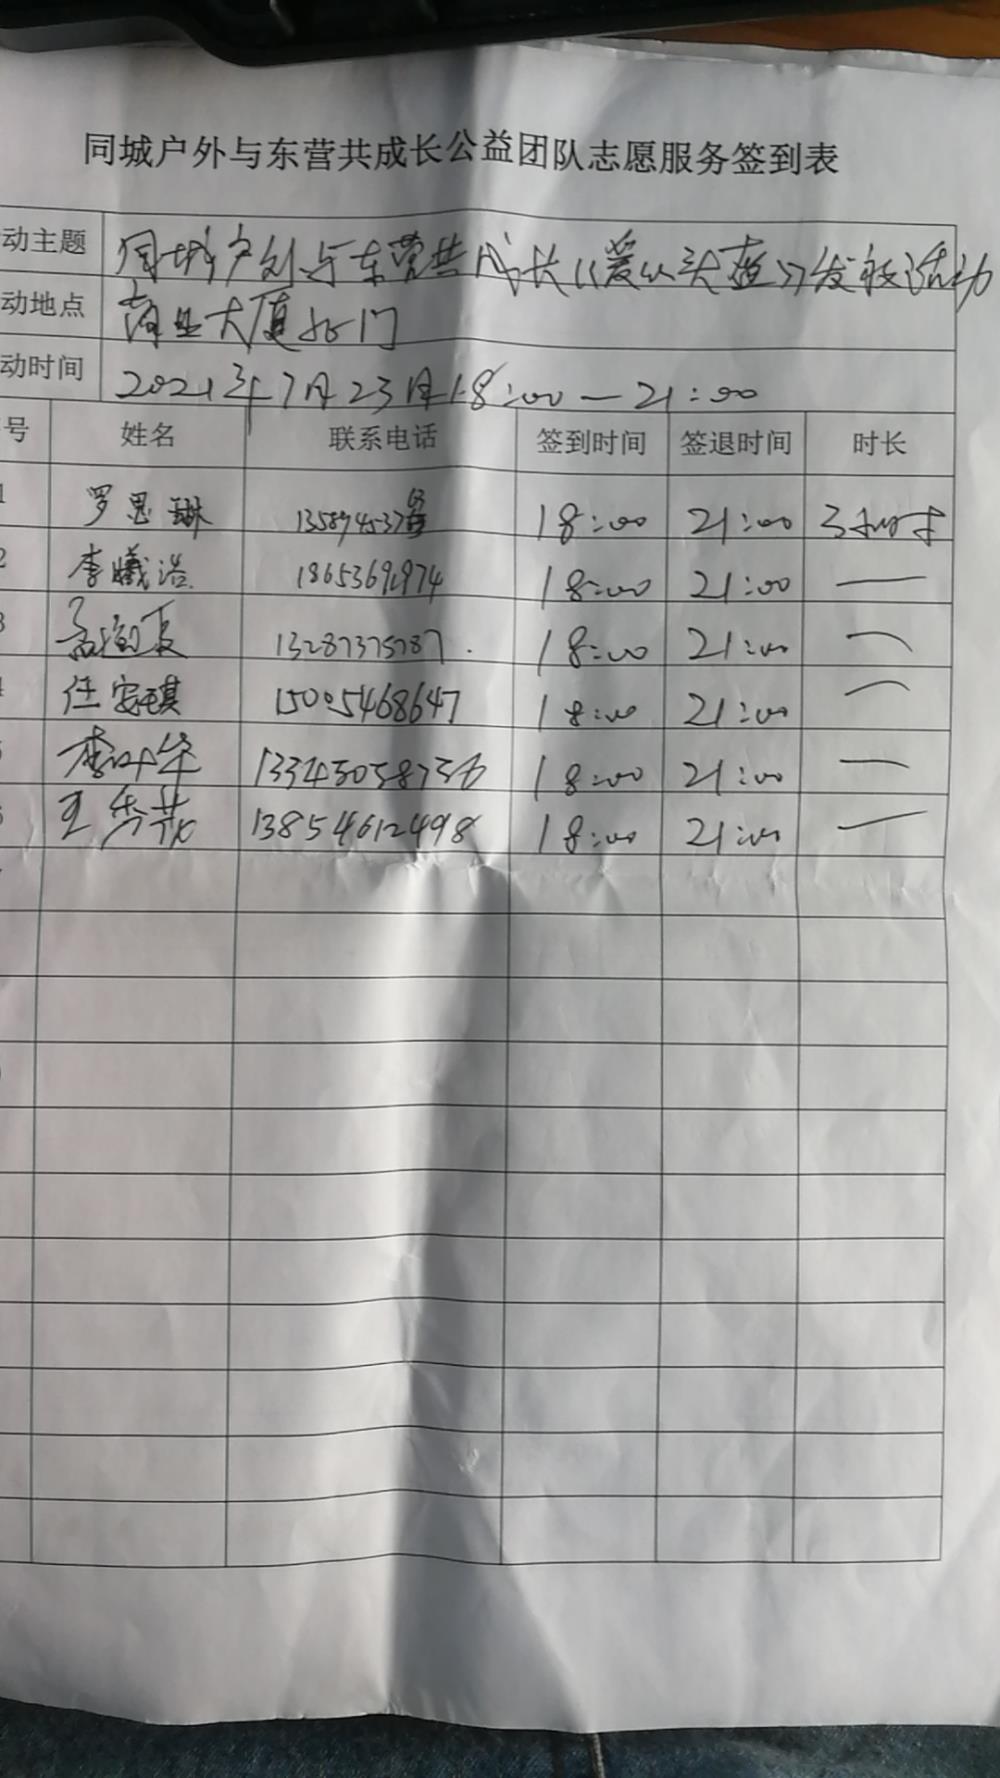 同城户外与东营共成长公益团队志愿服务签到表
动主题 同城户外与东营共成长《爱从头盔》发放活动
动地点 商业大厦北门
动时间 2021年7月23日18:00—21:00
号 姓名 联系电话 签到时间 签退时间 时长
1 罗思琳 135894537 18:00 21:00 3小时
2 李曦浩 18653692974 18:00 21:00 —
3 13287375787 18:00 21:00 —
4 任安琪 15005468647 18:00 21:00 —
5 李叶华 18:00 21:00 —
6 王秀花 13854612498 18:00 21:00 —